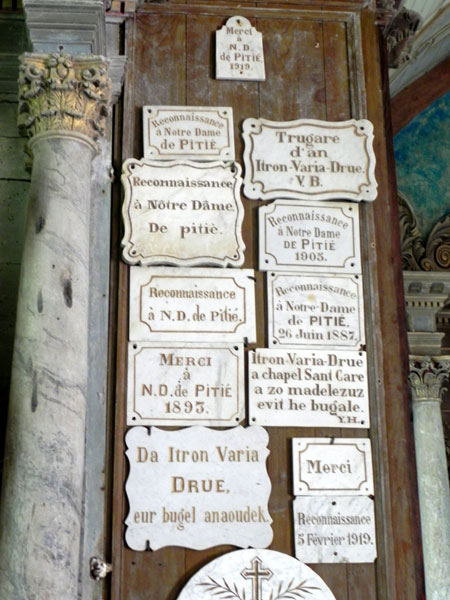 Merci
à
N.D.
de PITIÉ
1919.
Reconnaissance
à Notre Dame
de PITIÉ
Trugaré
d'an
Itron-Varia-Drue.
V.B.
Reconnaissance
à Nôtre Dâme
De pitié.
Reconnaissance
à Notre Dame
DE PITIÉ
1905.
Reconnaissance
à N.D. de Pitié.
Reconnaissance
à Notre-Dame
de PITIÉ.
26 Juin 1887.
MERCI
à
N.D. de PITIÉ
1893.
Itron-Varia-Drue
a chapel Sant Care
a zo madelezuz
evit he bugale.
Y.H.
Da Itron Varia
DRUE,
eur bugel anaoudek.
Merci
Reconnaissance
5 Février 1919.